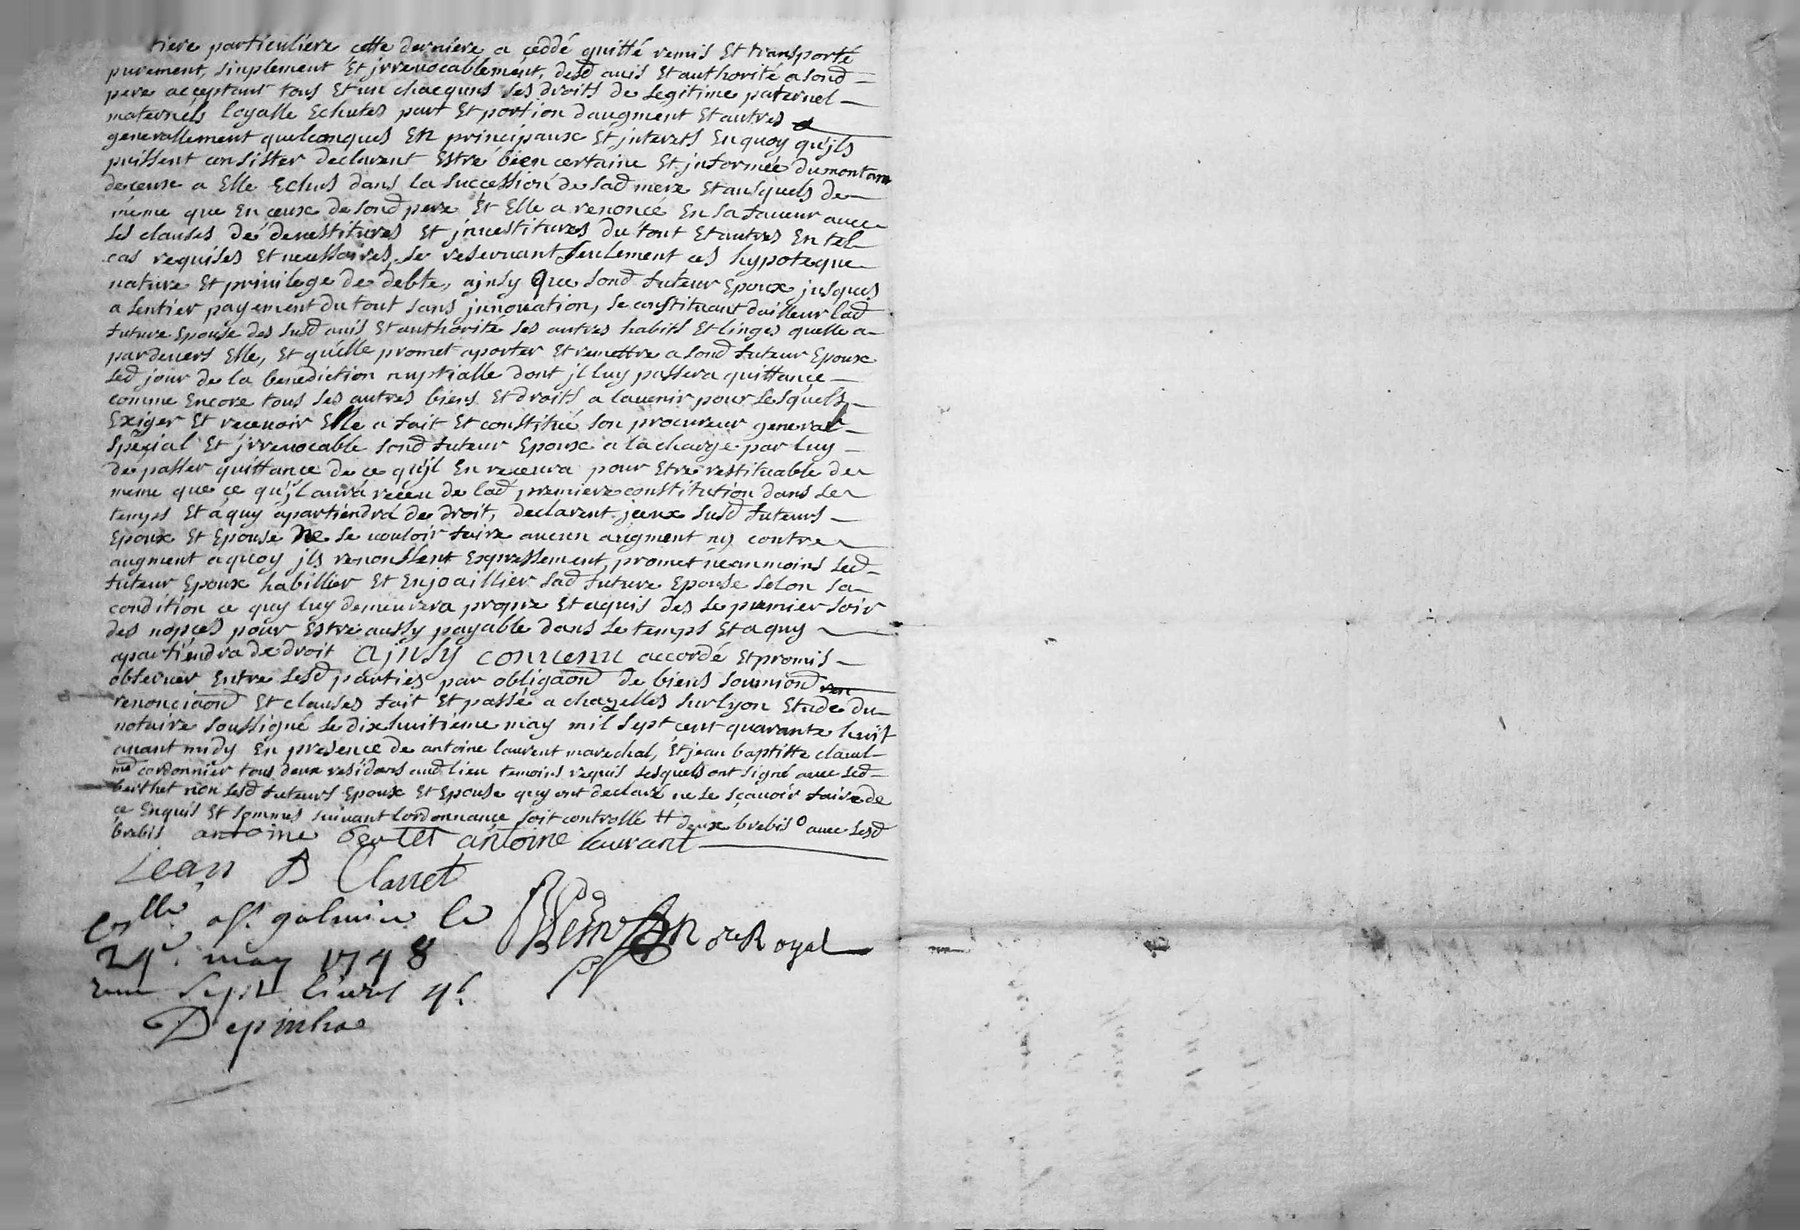 tiere particuliere cette derniere a ceddé quitté remis Et transporté
purement, sinplement Et jrrevocablement, desd auis Et authorité a sond
pere acceptant tous Et un chacquns ses droits de legitime paternel
maternels legalle Echutes part Et portion daugment Et autres
generallement quelconques En principaux Et jnterets En quoy qu'jls
puissent consister declarent Estre bien certaine Et jnformée du montant
deceux a Elle Echus dans la succession de sad mere Et ausquels de
méme que En ceux de sond pere Et Elle a renoncé En sa faueur auec
les clauses de deuestitures Et jnuestitures du tout Et autres En tel
cas requises Et necessaires, se reseruant seulement ces hypoteque
nature Et priuilege de debte, ajnsy Que sond futeur Epoux jusques
a lentier payement du tout sans jnnouation, se constituant dailleur lad
future Epouse des susd auis Et authorité ses autres habits Et linges quelle a
pardeuers Elle, Et qu'elle promet aporter Et remettre a sond futeur Epoux
led jour de la benediction nuptialle dont jl luy passera quittance
comme Encore tous ses autres biens Et droits a lauenir pour lesquels
Exiger Et receuoir Elle a fait Et constitué son procureur general
special Et jrreuocable sond futeur Epoux a la charge par luy
de passer quittance de ce qu'jl En receura pour Etre restituable de
meme que ce qu'jl aura receu de lad premiere constitution dans le
temps Et a quy apartiendra de droit, declarent jceux susd futeurs
Epoux Et Epouse Ne se uouloir faire aucun augment ny contre
augment a quoy jls renonssent Expressement, promet néanmoins led
futeur Epoux habillier Et Enjoaillier sad future Epouse selon sa
condition ce quy luy demeurera propre Et aquis des le premier soir
des nopces pour Estre aussy payable dans le temps Et a quy
apartiendra de droit ajnsy conuenu accordé Et promis
obseruer Entre lesd parties par obligaond de biens soumiond
renonciaond Et clauses fait Et passé a chazelles sur lyon Etude du
notaire soussigné le dix huitieme may mil sept cent quarante huit
auant midy En presence de antoine laurent marechal, Et jean baptiste claret
me cordonnier tous deux residans aud lieu temoins requis lesquels ont signé auec led
berthet non lesd futeurs Epoux Et Epouse quy ont declaré ne le sçauoir faire de
ce Enquis Et sommés suiuant lordonnance soit controllé # deux brebis o auec lesd
brebis antoine bertet antoine laurant
Jean B Claret
Collé a St galmier le
24e may 1748
sept liures 4s
Depinhac
ore Royal